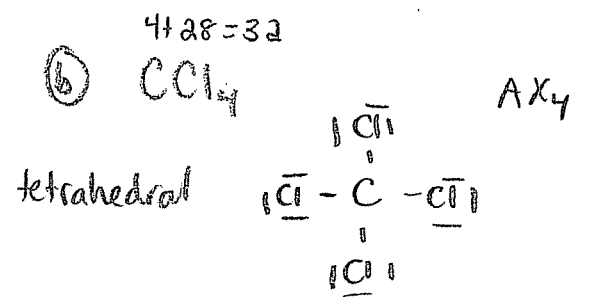 4+28=32
b CCl4
AX4
Cl
tetrahedral Cl - C - Cl
Cl